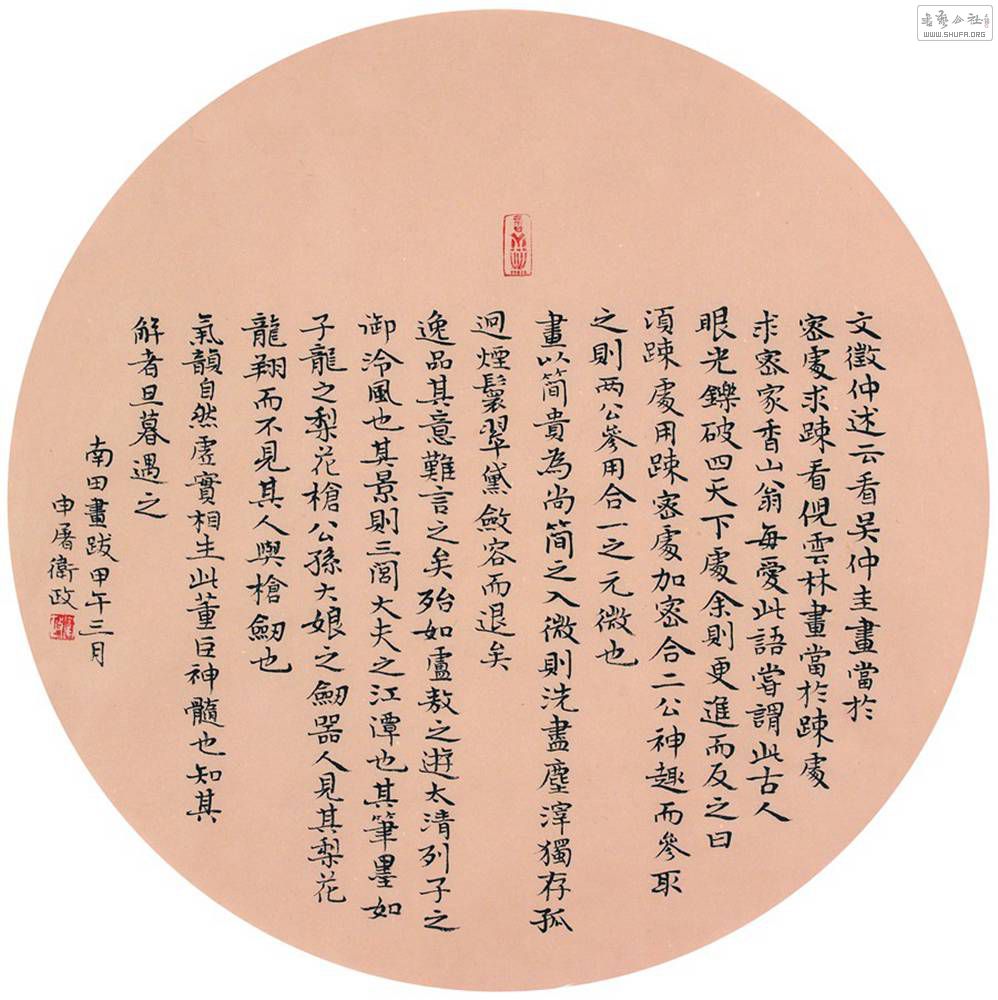 文徵仲述云看吴仲圭畫當於
密處求疎看倪雲林畫當於疎處
求密家香山翁每愛此語嘗謂此古人
眼光鑠破四天下處余則更進而反之曰
須疎處用疎密處加密合二公神趣而參取
之則两公參用合一之元微也
畫以简貴為尚简之入微則洗盡塵滓獨存孤
迥煙鬟翠黛斂容而退矣
逸品其意難言之矣殆如盧敖之遊太清列子之
御泠風也其景則三閭大夫之江潭也其筆墨如
子龍之梨花槍公孫大娘之劒器人見其梨花
龍翔而不見其人與槍劒也
氣韻自然虛實相生此董巨神髓也知其
解者旦暮遇之
南田畫跋甲午三月
申屠衛政
書藝公社
WWW.SHUFA.ORG